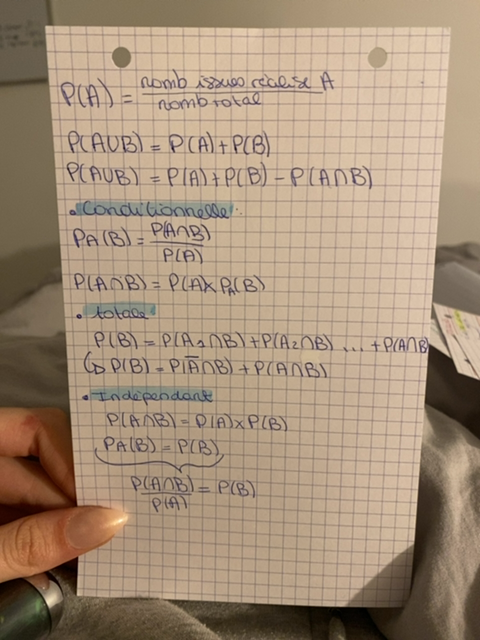 P(A) = nomb issues réalise A / nomb total
P(A∪B) = P(A)+P(B)
P(A∪B) = P(A)+P(B) - P(A∩B)
• Conditionnelle :
PA(B) = P(A∩B) / P(A)
P(A∩B) = P(A)×PA(B)
• totale
P(B) = P(A₁∩B)+P(A₂∩B) ... +P(A∩B)
↳ P(B) = P(Ā∩B) + P(A∩B)
• Indépendant
P(A∩B) = P(A)×P(B)
PA(B) = P(B)
P(A∩B) / P(A) = P(B)